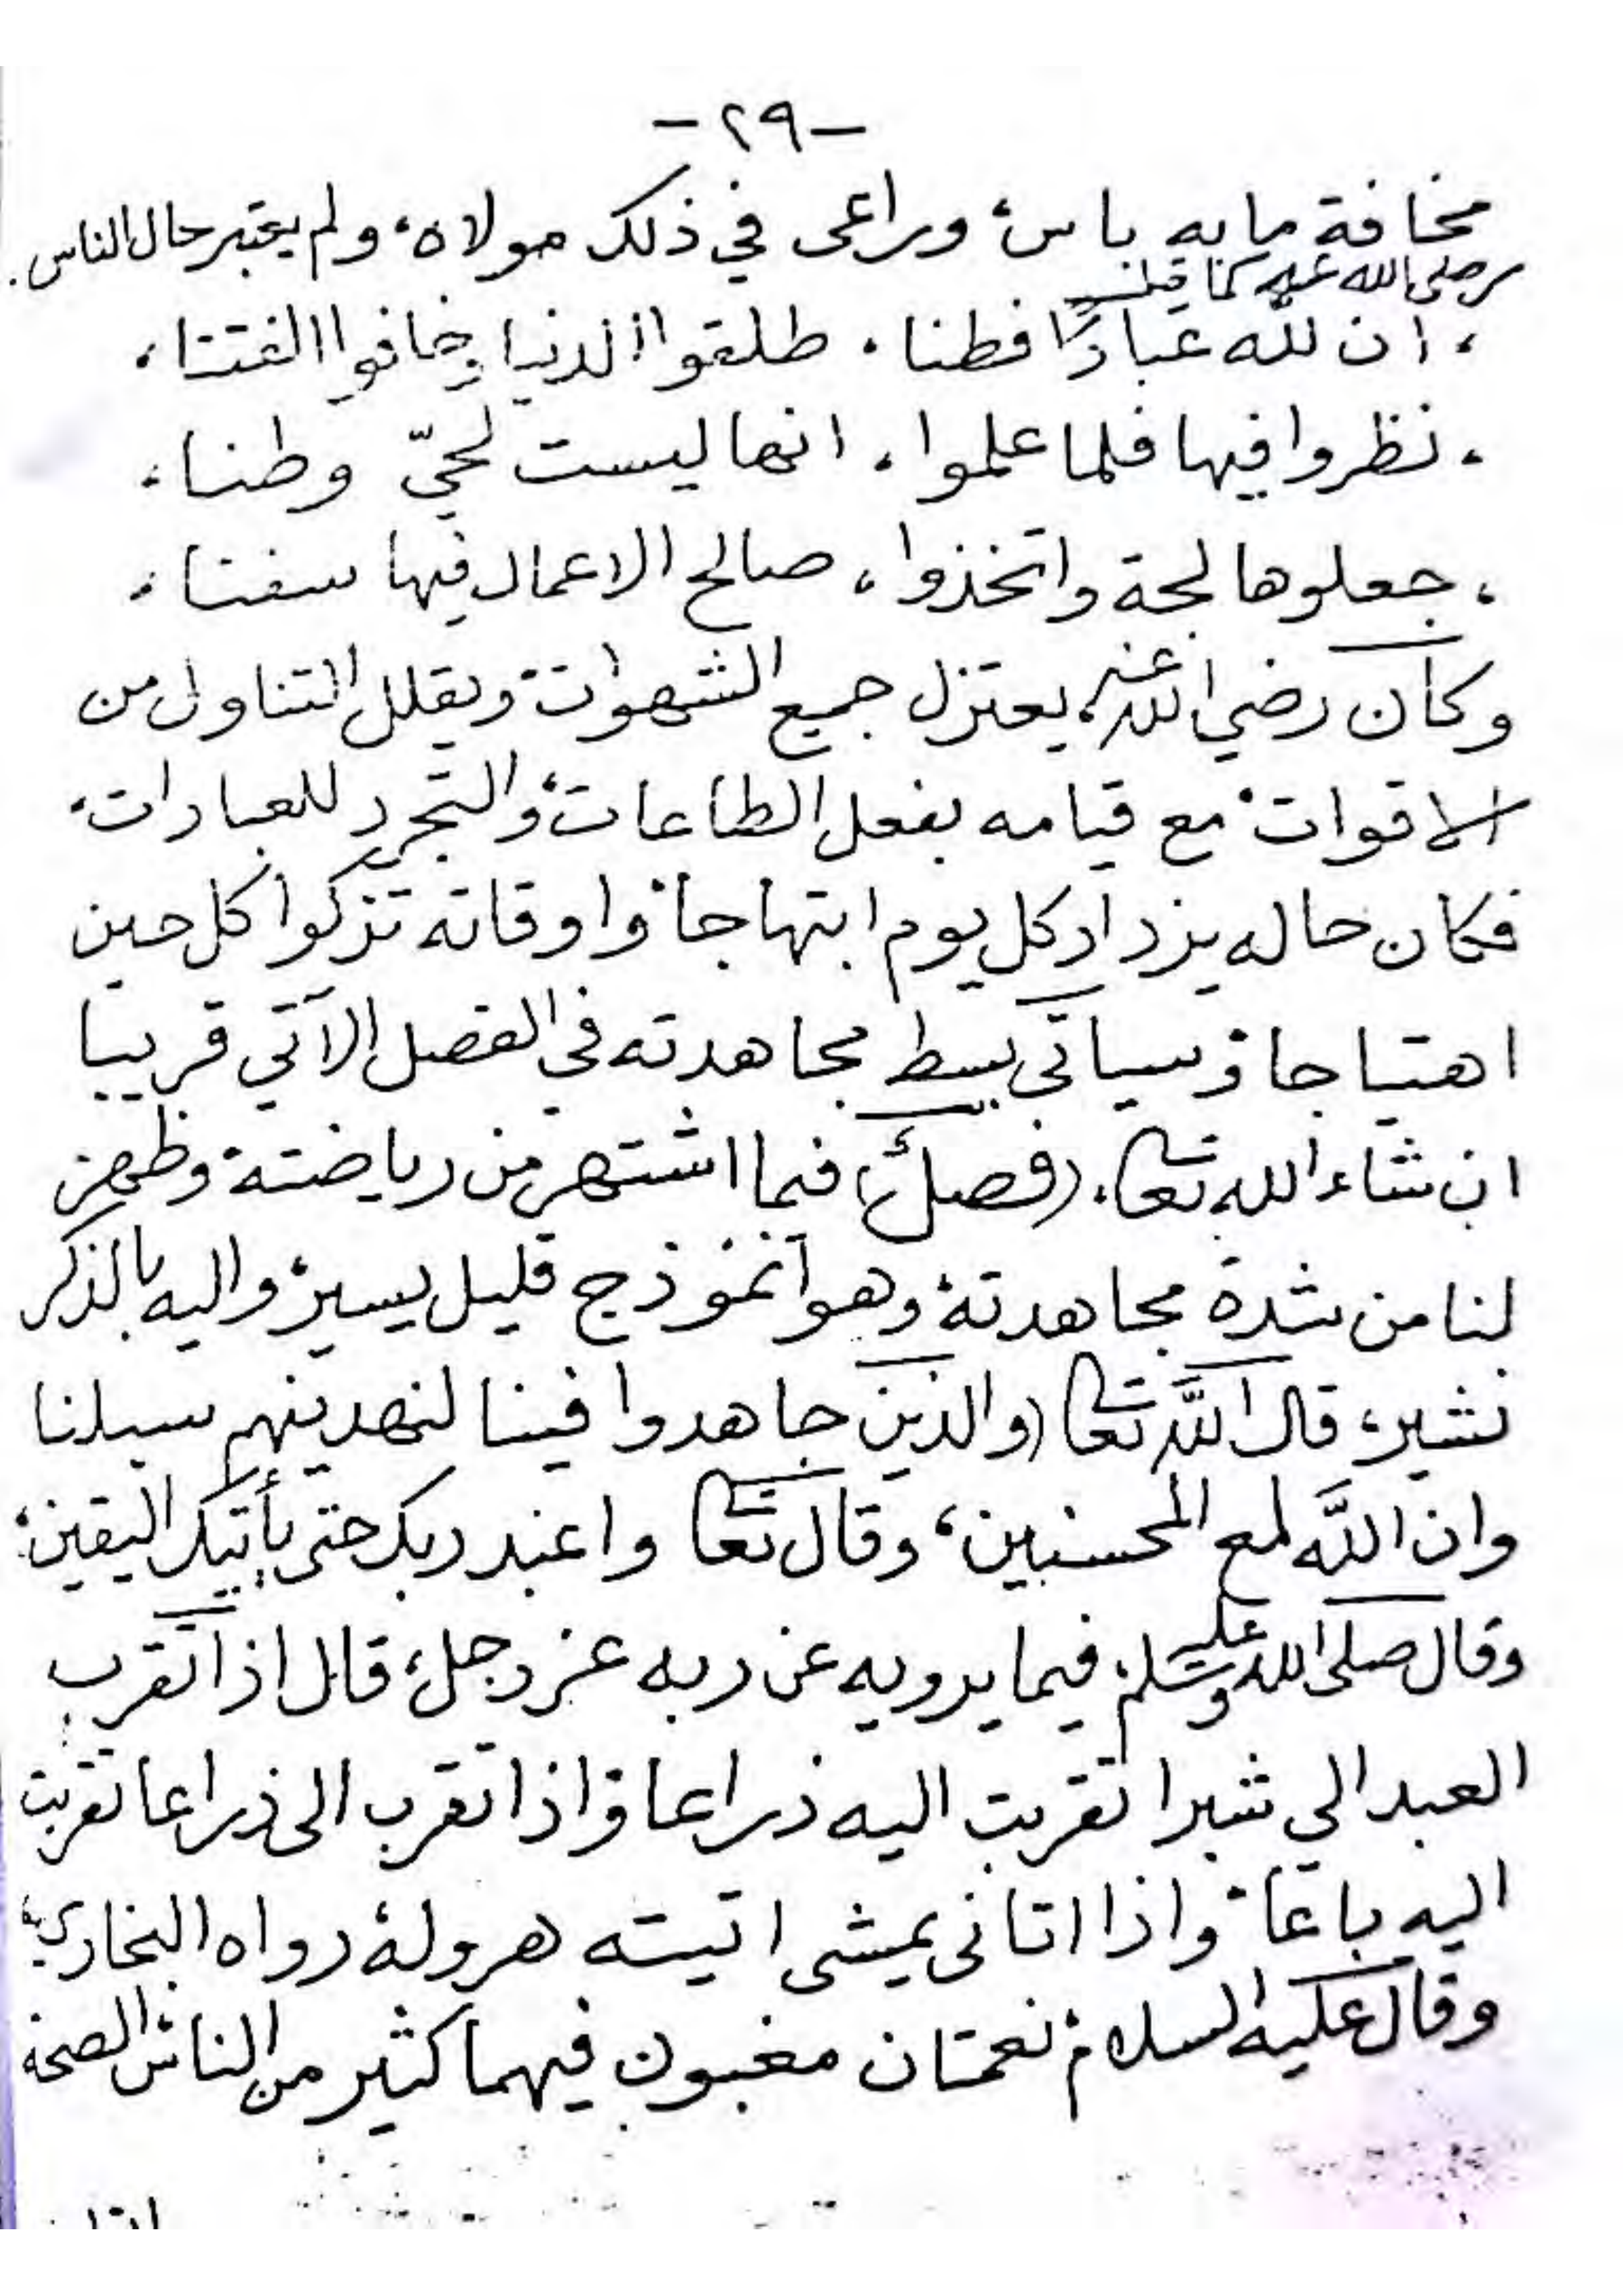 -٢٩-
مخافة ما به باس، وراعى في ذلك مولاه، ولم يعتبر حال الناس.
صلى الله عليه كما قيل
، ان لله عبادًا فطنا، طلقوا الدنيا وخافوا الفتنا،
، نظروا فيها فلما علموا، انها ليست لحيّ وطنا،
، جعلوها لجة واتخذوا، صالح الاعمال فيها سفنا،
وكان رضي الله عنه، يعتزل جميع الشهوات، ويقلل التناول من
الاقوات، مع قيامه بفعل الطاعات، والتجرد للعبادات،
فكان حاله يزداد كل يوم ابتهاجا، واوقاته تزكوا كل حين
اهتياجا، وسيأتي بسط مجاهدته في الفصل الآتي قريبا
ان شاء الله تعالى، (فصل) فيما اشتهر من رياضته، وظهر
لنا من شدة مجاهدته، وهو انموذج قليل يسير، واليه بالذكر
نشير، قال الله تعالى (والذين جاهدوا فينا لنهدينهم سبلنا
وان الله لمع المحسنين، وقال تعالى واعبد ربك حتى يأتيك اليقين،
وقال صلى الله عليه وسلم، فيما يرويه عن ربه عز وجل، قال اذا تقرب
العبد الي شبرا تقربت اليه ذراعا، واذا تقرب الى ذراعا تقربت
اليه باعا، واذا اتانى يمشى اتيته هرولة، رواه البخاري،
وقال عليه السلام، نعمتان مغبون فيهما كثير من الناس، الصحة